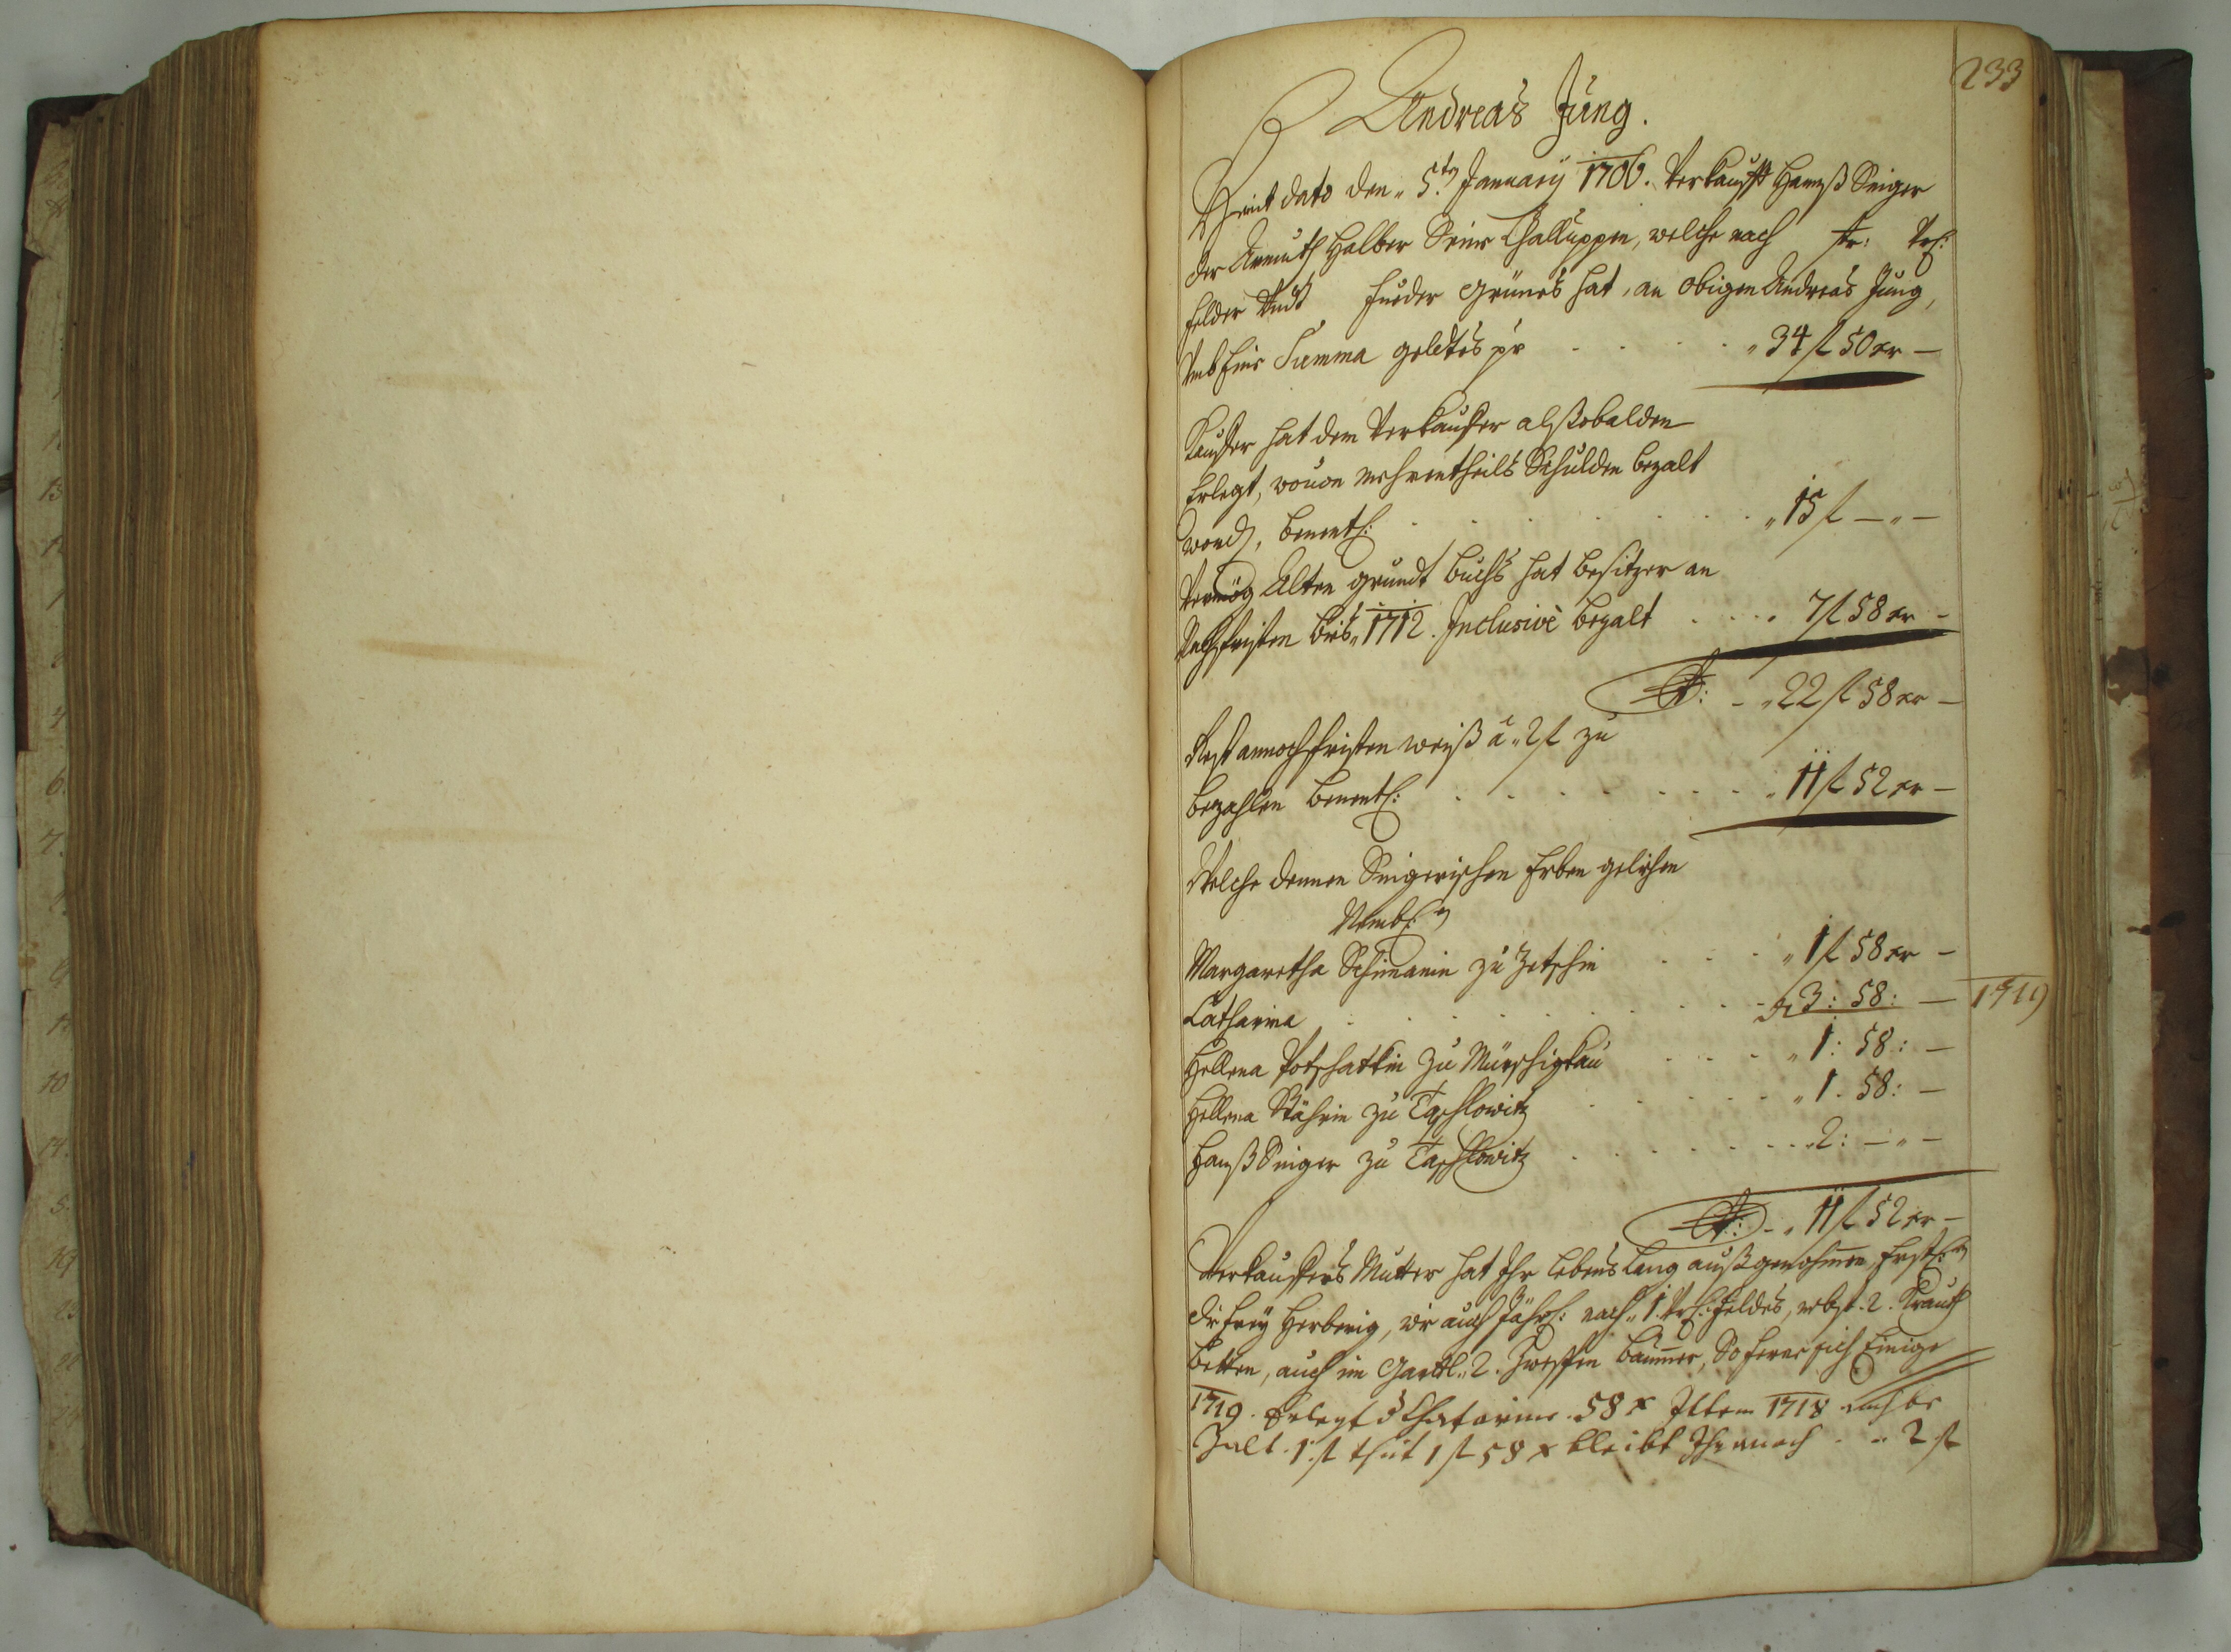 233
Andreas Jung.
Heüt dato den 5.ten January 1706. Verkaufft Hanß Seiger
der Armuth Halber Seine Challuppen, welche nach str: Vrl:
felder Undt fueder Grünes hat, an obigen Andreas Jung,
Umb Eine Summa geldtes pr . . . . 34 f 50 xr —
Kauffer hat dem Verkauffer alßobalden
Erlegt, wouon mehrentheils Schulden bezalt
word, benentl: . . . . . . 15 f — „ —
Vermög Alten grundt buchs hat besitzer an
Nachfristen bis 1712. Inclusivè bezalt . . . . 7 f 58 xr —
St: — „ 22 f 58 xr —
Rest annoch fristen weiß â 2 f zu
bezahlen benentl: . . . . . . . 11 f 52 xr —
Welche dennen Seigerischen Erben gebühren
Nembl:
Margaretha Schimanin zu Zetschin . . . „ 1 f 58 xr —
Catharina . . . . . . . 3: 58: — 1719
Hellena Potschatkin zu . . . „ 1: 58: —
Hellena Stährin zu Taschlowitz . . . . „ 1. 58: —
Hanß Seiger zu Taschlowitz . . . . . 2: — „ —
St: — „ 11 f 52 xr —
Verkauffers Mutter hat Ihr lebens Lang außgenohmen, Erstl:
die frey Herberig, wie auch Jährl: nach 1. Vrl: feldes, nebst 2. Krauth
betten, auch im Gartl 2. Zweschen baumer, So ferne sich Einige
1719. Erlegt d Chatarina 58 x Ittem 1718 auch be
Zalt 1 f thut 1 f 58 x bleibt Ihr noch . . 2 f